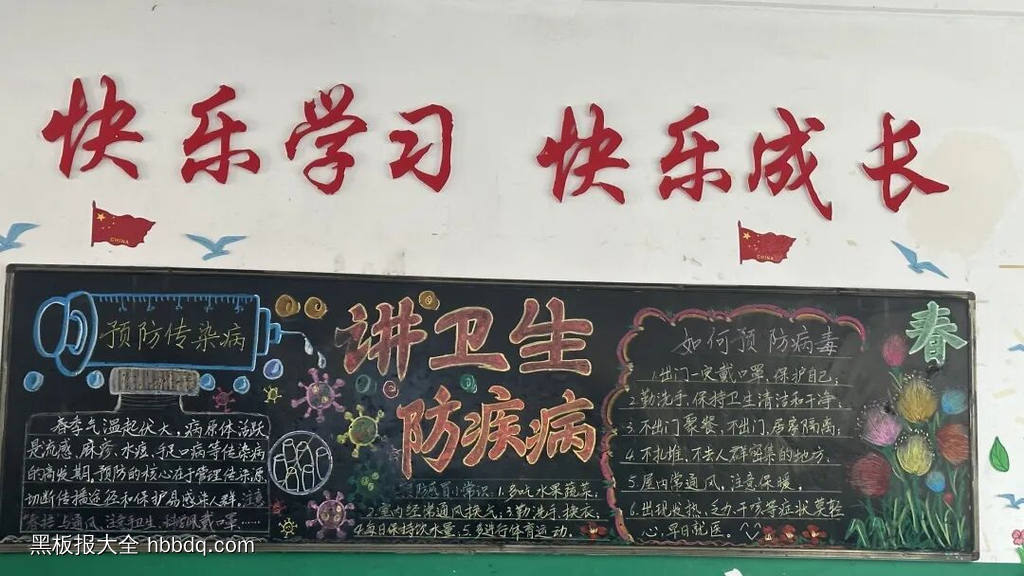 快乐学习 快乐成长
CHINA
CHINA
预防传染病
春季气温起伏大,病原体活跃
是流感、麻疹、水痘、手足口病等传染病
的高发期,预防的核心在于管理传染源,
切断传播途径和保护易感人群。注意
通风、注意卫生、科学戴口罩……
讲卫生
防疾病
预防感冒小常识:1.多吃水果蔬菜、
2.室内经常通风换气、3.勤洗手、换衣、
4.每日保持饮水量、5.多进行体育运动。
如何预防病毒
1.出门一定戴口罩,保护自己;
2.勤洗手、保持卫生清洁和干净、
3.不出门聚餐、不出门、居家隔离;
4.不扎堆、不去人群密集的地方、
5.屋内常通风,注意保暖。
6.出现发热、乏力、干咳等症状莫轻
心,早日就医。
春
黑板报大全 hbbdq.com